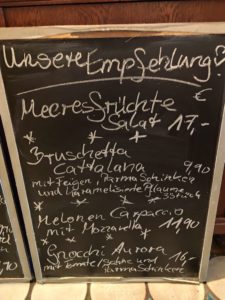 Unsere Empfehlung:
€
Meeresfrüchte
Salat 17,-
* * *
Bruschetta
Cattalana 9,90
mit Feigen, Parma Schinken
und karamelisierte Pflaume
3 Stück
* * *
Melonen Carpaccio
mit Mozzarella 11,90
* * *
Gnocchi Aurora
mit Tomate/Sahne und 16,-
Parma Schinken